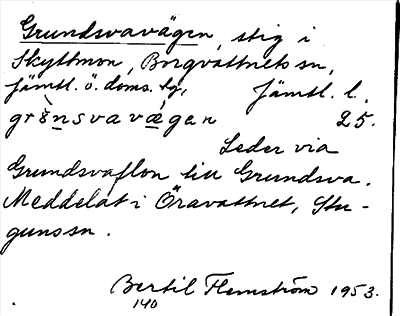 Grundsvavägen, stig i
Skyttmon, Borgvattnets sn,
Jämtl. ö. doms. hg, Jämtl. l.
25.
Leder via
Grundsvaflon till Grundsva.
Meddelat i Öravattnet, Stu-
guns sn.
Bertil Flemström 1953.
140